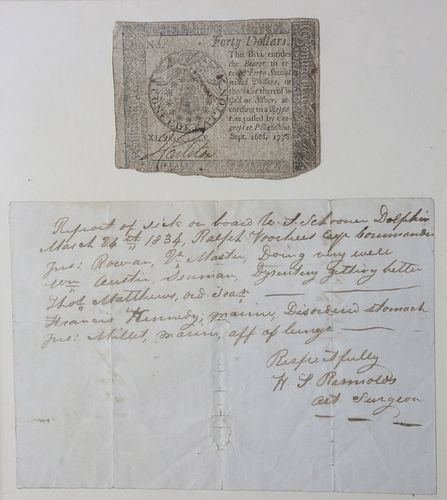 No.
Forty Dollars.
This Bill entitles
the Bearer to re-
ceive Forty Spanish
milled Dollars, or
the Value thereof in
Gold or Silver, ac-
cording to a Resolu-
tion passed by Con-
gress at Philadelphia
Sept. 26th, 1778.
CONFEDERATION
Report of sick on board U. S. Schooner Dolphin
March 26th 1834, Ralph Voorhees Esqr Commander
Jno: Rowan, Master, Doing very well
Wm Austin Seaman, Dysentery getting better
Thos Matthews, ord. Sean
Francis Kennedy, marine, Disordered stomach
Jno: Millet, marine, aff of lungs
Respectfully
H. S. Rennolds
act Surgeon